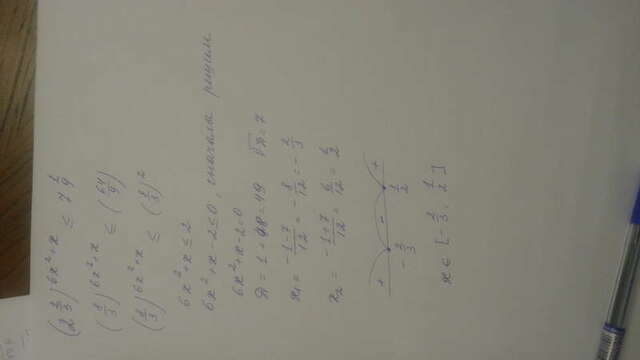 (2 2/3)^6x²+x ≤ 7 1/9
(8/3)^6x²+x ≤ (64/9)
(8/3)^6x²+x ≤ (8/3)²
6x²+x ≤ 2
6x²+x-2≤0, сначала решим
6x²+x-2=0
D = 1+48=49 √D=7
x₁ = -1-7/12 = -8/12 = -2/3
x₂ = -1+7/12 = 6/12 = 1/2
+ - +
-2/3 1/2
x ∈ [-2/3, 1/2]